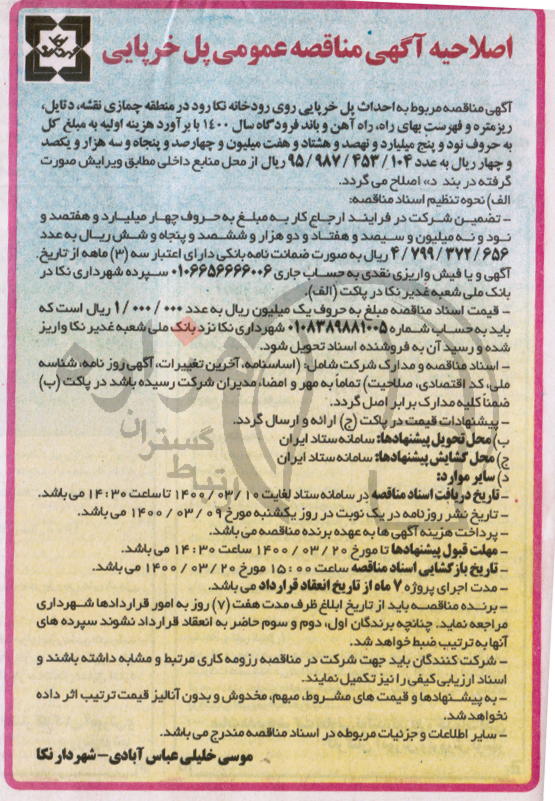 اصلاحیه آگهی مناقصه عمومی پل خرپایی
آگهی مناقصه مربوط به احداث پل خرپایی روی رودخانه نکا رود در منطقه چمازی نقشه، دتایل،
ریزمتره و فهرست بهای راه، راه آهن و باند فرودگاه سال ۱۴۰۰ با برآورد هزینه اولیه به مبلغ کل
به حروف نود و پنج میلیارد و نهصد و هشتاد و هفت میلیون و چهارصد و پنجاه و سه هزار و یکصد
و چهار ریال به عدد ۹۵/۹۸۷/۴۵۳/۱۰۴ ریال از محل منابع داخلی مطابق ویرایش صورت
گرفته در بند «د» اصلاح می گردد.
الف) نحوه تنظیم اسناد مناقصه:
- تضمین شرکت در فرایند ارجاع کار به مبلغ به حروف چهار میلیارد و هفتصد و
نود و نه میلیون و سیصد و هفتاد و دو هزار و ششصد و پنجاه و شش ریال به عدد
۴/۷۹۹/۳۷۲/۶۵۶ ریال به صورت ضمانت نامه بانکی دارای اعتبار سه (۳) ماهه از تاریخ
آگهی و یا فیش واریزی نقدی به حساب جاری ۰۱۰۶۶۵۶۶۶۶۰۰۶ سپرده شهرداری نکا در
بانک ملی شعبه غدیر نکا در پاکت (الف).
- قیمت اسناد مناقصه مبلغ به حروف یک میلیون ریال به عدد ۱/۰۰۰/۰۰۰ ریال است که
باید به حساب شماره ۰۱۰۸۳۸۹۸۸۱۰۰۵ شهرداری نکا نزد بانک ملی شعبه غدیر نکا واریز
شده و رسید آن به فروشنده اسناد تحویل شود.
- اسناد مناقصه و مدارک شرکت شامل: (اساسنامه، آخرین تغییرات، آگهی روز نامه، شناسه
ملی، کد اقتصادی، صلاحیت) تماماً به مهر و امضاء مدیران شرکت رسیده باشد در پاکت (ب)
ضمناً کلیه مدارک برابر اصل گردد.
- پیشنهادات قیمت در پاکت (ج) ارائه و ارسال گردد.
ب) محل تحویل پیشنهادها: سامانه ستاد ایران
ج) محل گشایش پیشنهادها: سامانه ستاد ایران
د) سایر موارد:
- تاریخ دریافت اسناد مناقصه در سامانه ستاد لغایت ۱۴۰۰/۰۳/۱۰ تا ساعت ۱۴:۳۰ می باشد.
- تاریخ نشر روزنامه در یک نوبت در روز یکشنبه مورخ ۱۴۰۰/۰۳/۰۹ می باشد.
- پرداخت هزینه آگهی ها به عهده برنده مناقصه می باشد.
- مهلت قبول پیشنهادها تا مورخ ۱۴۰۰/۰۳/۲۰ ساعت ۱۴:۳۰ می باشد.
- تاریخ بازگشایی اسناد مناقصه ساعت ۱۵:۰۰ مورخ ۱۴۰۰/۰۳/۲۰ می باشد.
- مدت اجرای پروژه ۷ ماه از تاریخ انعقاد قرارداد می باشد.
- برنده مناقصه باید از تاریخ ابلاغ ظرف مدت هفت (۷) روز به امور قراردادها شهرداری
مراجعه نماید. چنانچه برندگان اول، دوم و سوم حاضر به انعقاد قرارداد نشوند سپرده های
آنها به ترتیب ضبط خواهد شد.
- شرکت کنندگان باید جهت شرکت در مناقصه رزومه کاری مرتبط و مشابه داشته باشند و
اسناد ارزیابی کیفی را نیز تکمیل نمایند.
- به پیشنهادها و قیمت های مشروط، مبهم، مخدوش و بدون آنالیز قیمت ترتیب اثر داده
نخواهد شد.
- سایر اطلاعات و جزئیات مربوطه در اسناد مناقصه مندرج می باشد.
موسی خلیلی عباس آبادی – شهردار نکا
گستران
ارتباط